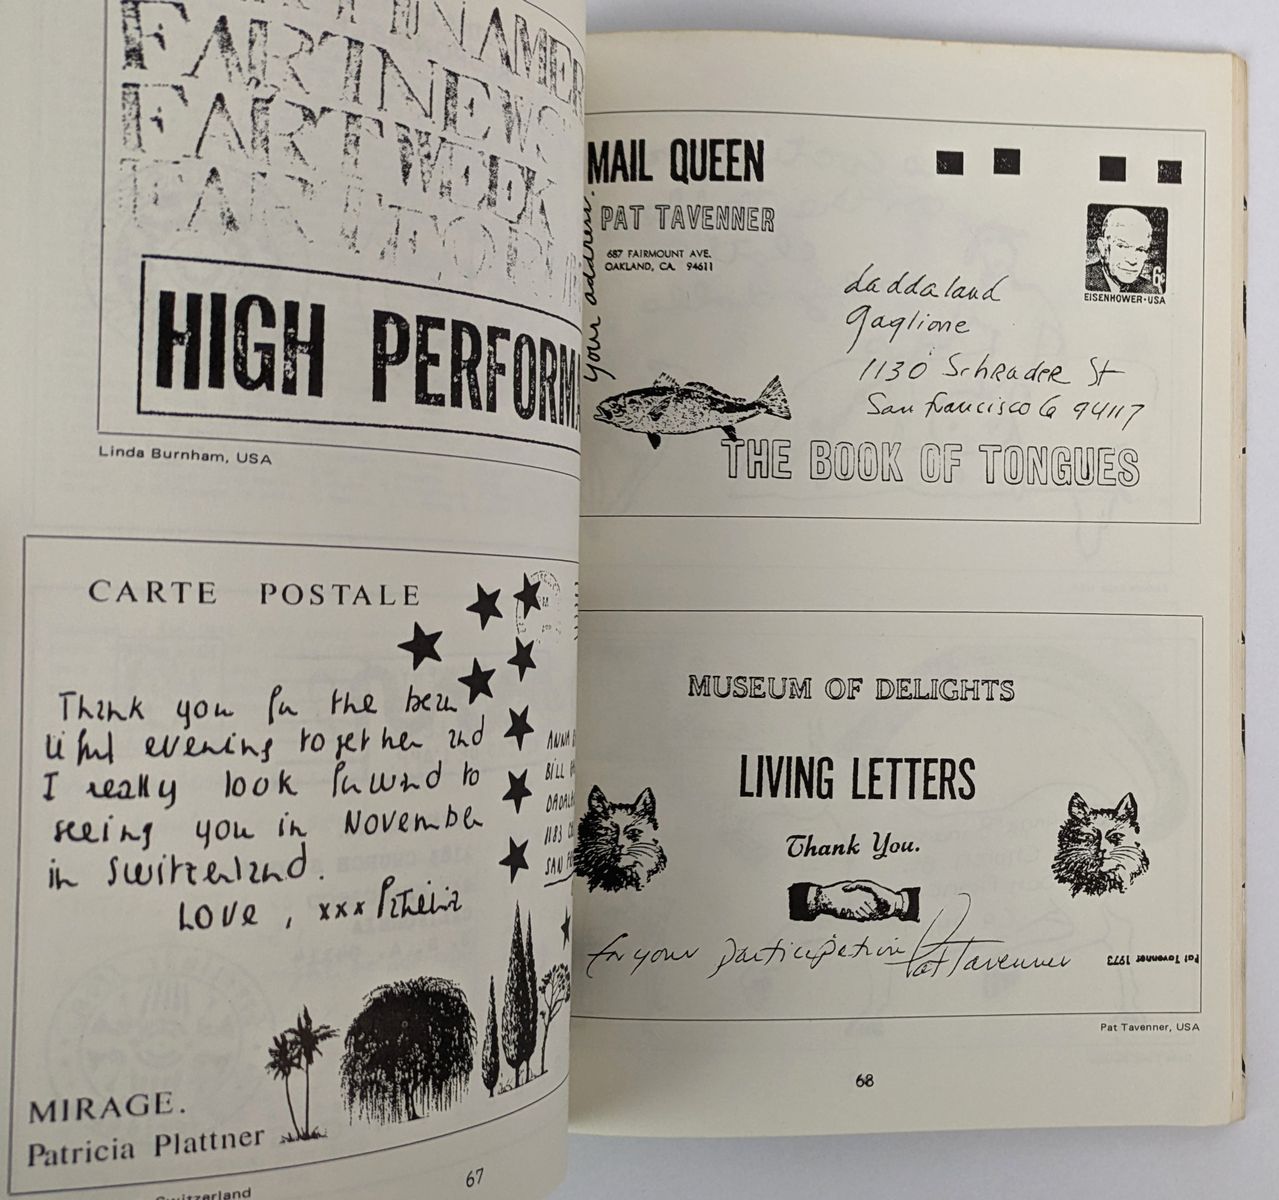 FARTNEWS
FARTWEEK
HIGH PERFORM
Linda Burnham, USA
CARTE POSTALE
Thank you for the beau
tiful evening together and
I really look forward to
seeing you in November
in Switzerland.
LOVE, xxx Patricia
MIRAGE.
Patricia Plattner
Switzerland
67
MAIL QUEEN
PAT TAVENNER
687 FAIRMOUNT AVE.
OAKLAND, CA. 94611
your address.
6¢
EISENHOWER·USA
daddaland
Gaglione
1130 Schrader St
San Francisco Ca 94117
THE BOOK OF TONGUES
MUSEUM OF DELIGHTS
LIVING LETTERS
Thank You.
for your participation Pat Tavenner
Pat Tavenner 1973
Pat Tavenner, USA
68